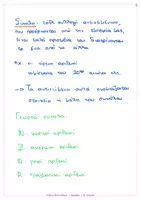 Σύνολο: κάθε συλλογή αντικειμένων,
που προέρχονται από την εμπειρία μας,
είναι καλά ορισμένα και διακρίνονται
το ένα από τα άλλα.
π.χ. οι άρτιοι αριθμοί
του 20ου αιώνα κλπ.
→ Τα αντικείμενα αυτά ονομάζονται
στοιχεία ή μέλη του συνόλου
Γνωστά σύνολα:
N: φυσικοί αριθμοί
Z: ακέραιοι αριθμοί
Q: ρητοί αριθμοί
R: πραγματικοί αριθμοί